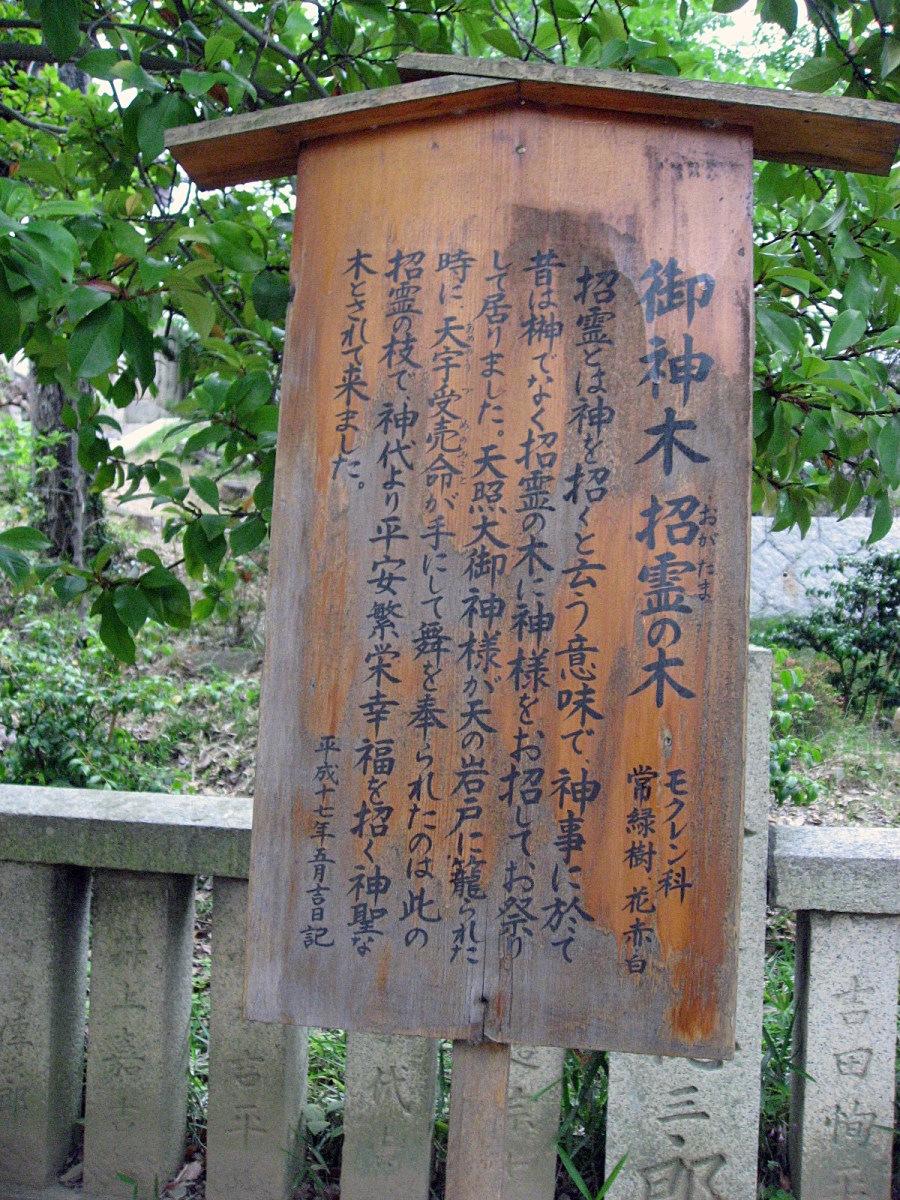 御神木 招霊の木
おがたま
モクレン科
常緑樹 花赤・白
招霊とは神を招くと云う意味で、神事に於て
昔は榊でなく招霊の木に神様をお招して、お祭り
して居りました。天照大御神様が天の岩戸に籠られた
時に、天宇受売命が手にして舞を奉られたのは此の
招霊の枝で、神代より平安繁栄幸福を招く神聖な
木とされて来ました。
平成十七年五月吉日記
吉田
三郎
代
吉平
井上嘉吉
郎